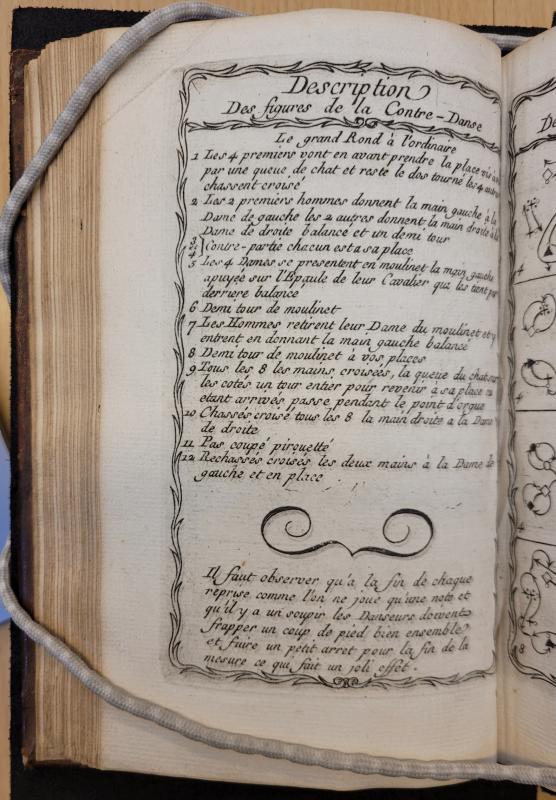 Description
Des figures de la Contre-Danse
Le grand Rond à l'ordinaire
1 Les 4 premiers vont en avant prendre la place vis a
par une queue de chat et reste le dos tourné les 4 autres
chassent croisé
2 Les 2 premiers hommes donnent la main gauche à la
Dame de gauche les 2 autres donnent la main droite à la
Dame de droite balancé et un demi tour
3
4 Contre-partie chacun est a sa place
5 Les 4 Dames se presentent en moulinet la main gauche
apuyée sur l'Epaule de leur Cavalier qui les tient par
derriere balancé
6 Demi tour de moulinet
7 Les Hommes retirent leur Dame du moulinet et y
entrent en donnant la main gauche balancé
8 Demi tour de moulinet à vos places
9 Tous les 8 les mains croisées, la queue du chat sur
les cotés un tour entier pour revenir à sa place
etant arrivés passe pendant le point d'orgue
10 Chassés croisé tous les 8 la main droite a la Dame
de droite
11 Pas coupé pirouetté
12 Rechassés croisés les deux mains à la Dame de
gauche et en place
Il faut observer qu'a la fin de chaque
reprise comme l'on ne joue qu'une note et
qu'il y a un soupir les Danseurs doivent
frapper un coup de pied bien ensemble
et faire un petit arret pour la fin de la
mesure ce qui fait un joli effet.